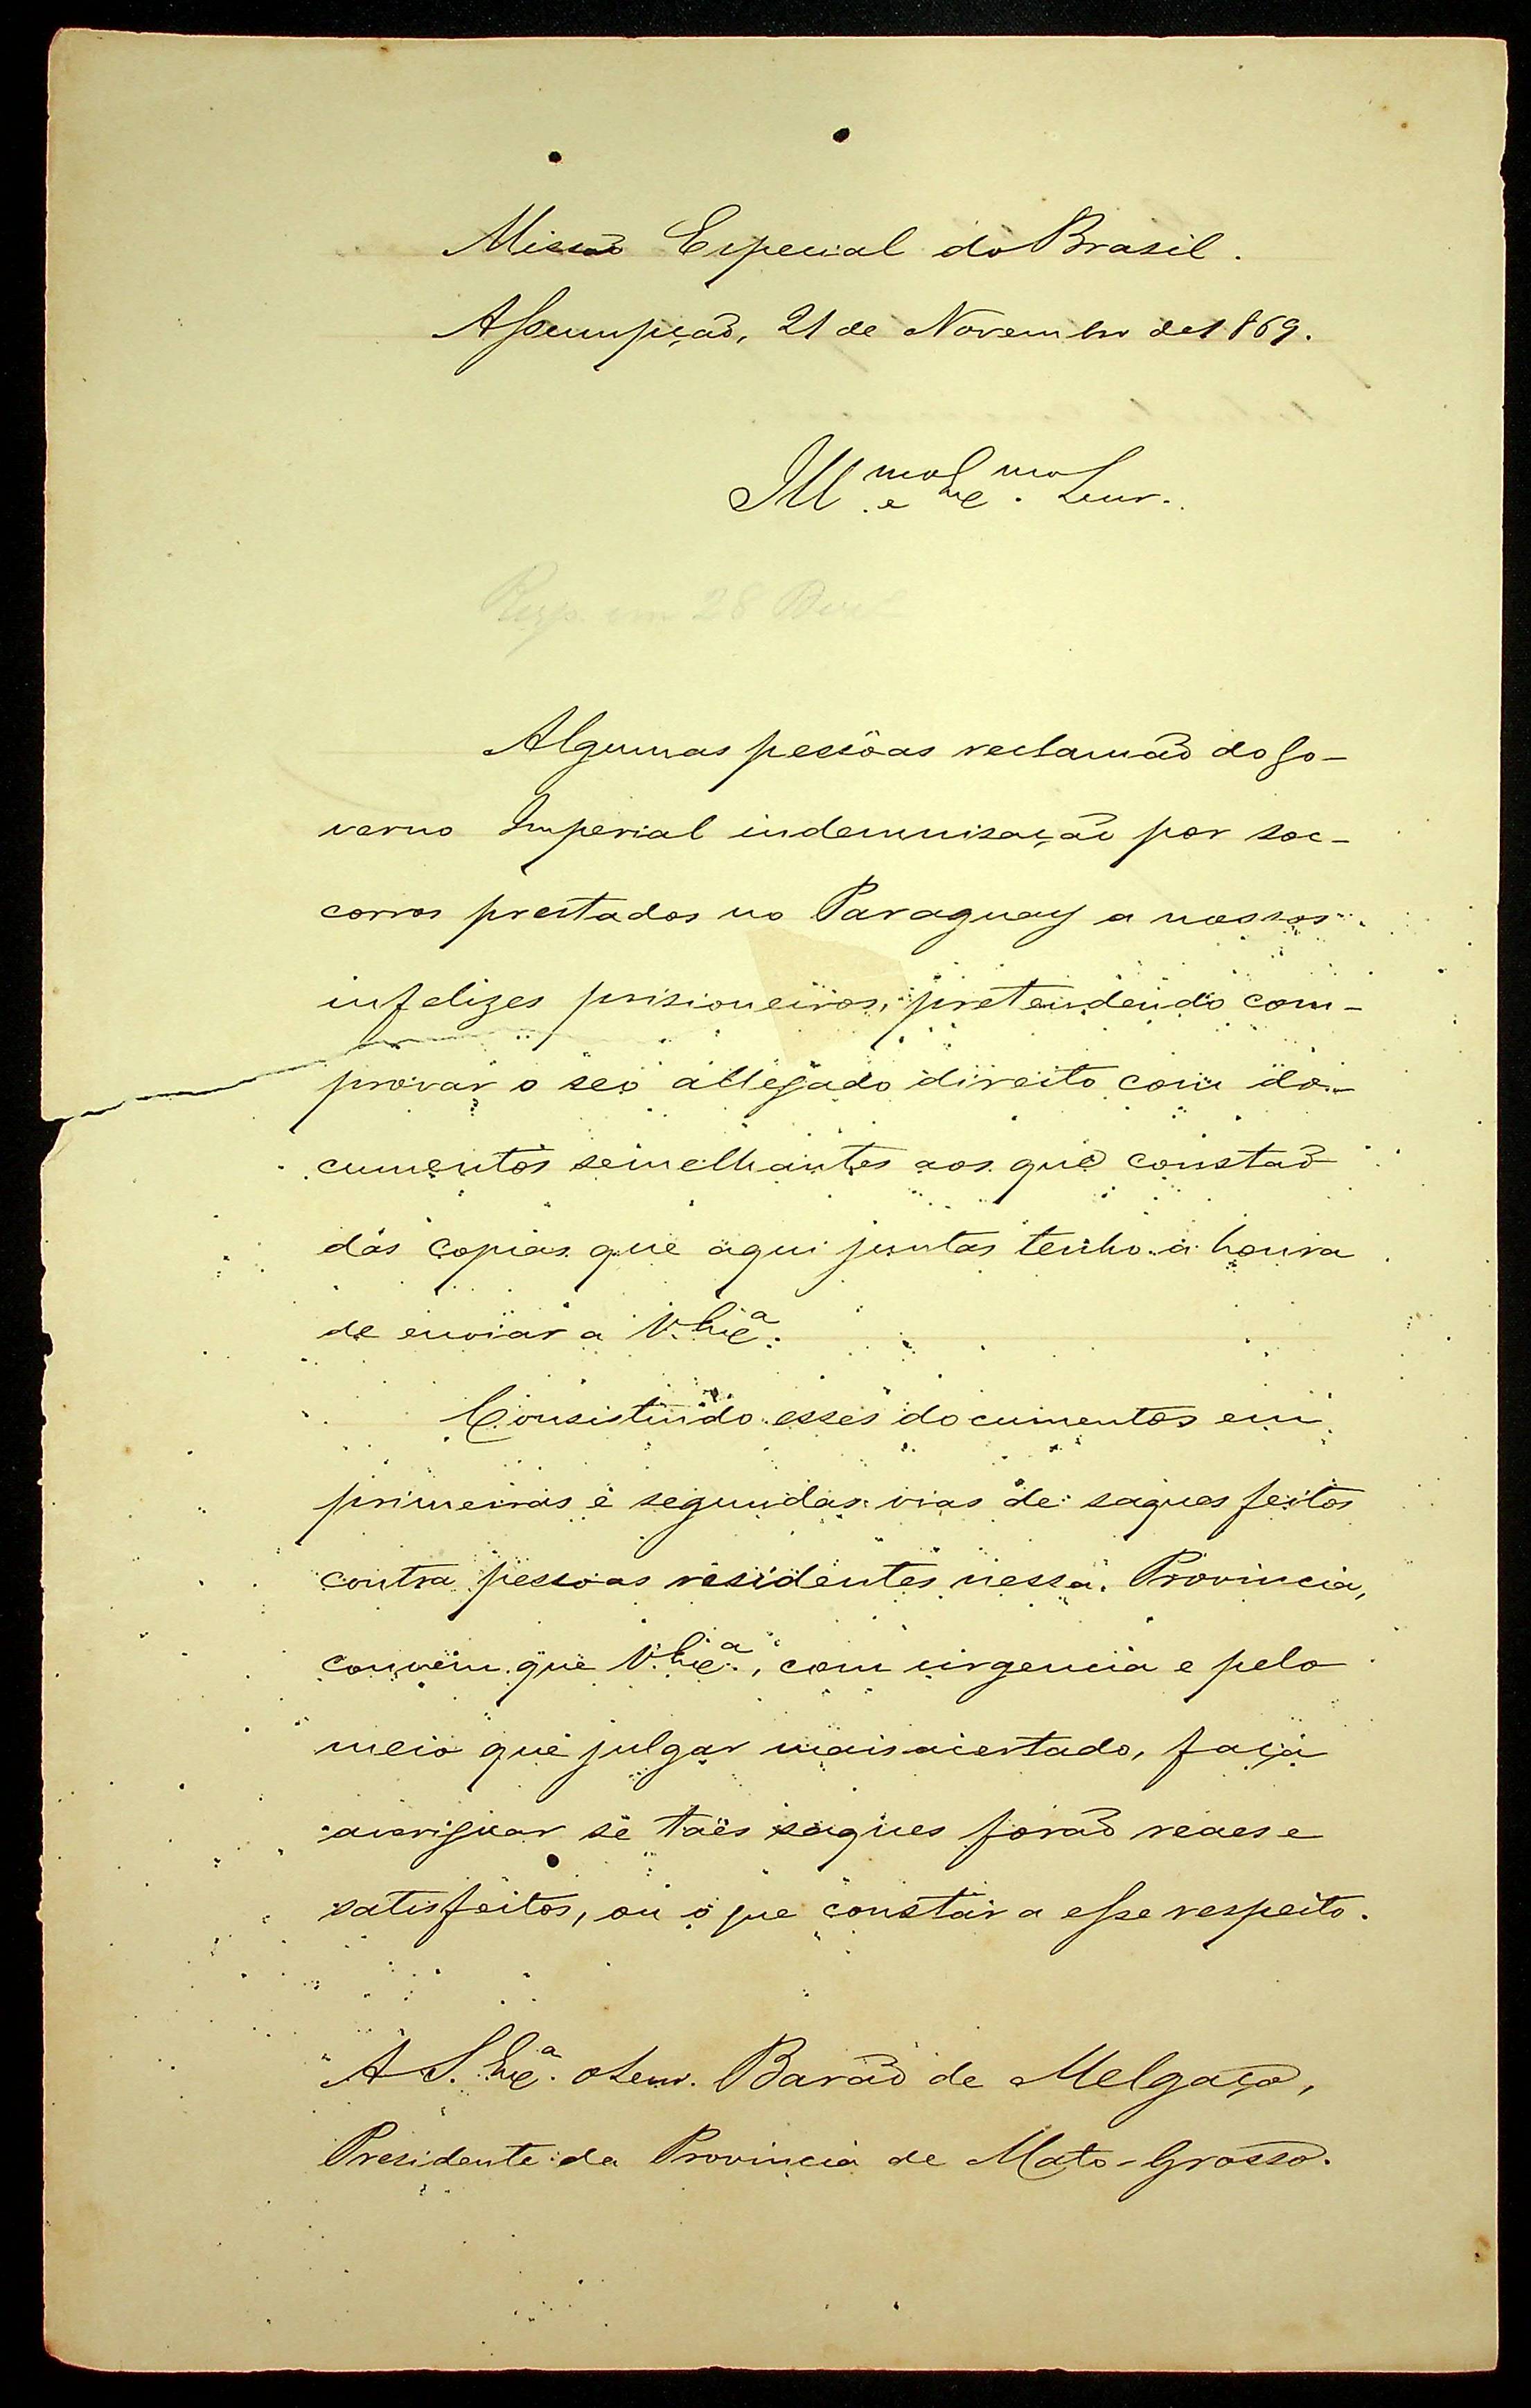 Missão Especial do Brasil.
Assumpção, 21 de Novembro de 1869.
Ill.mo e Exc.mo Senr.
Resp. em 28
Algumas pessôas reclamão do Go-
verno Imperial indemnisação por soc-
corros prestados no Paraguay a nossos
infelizes prisioneiros, pretendendo com-
provar o seo allegado direito com do-
cumentos semelhantes aos que constão
das copias que aqui juntas tenho a honra
de enviar a V. Exc.ª.
Consistindo esses documentos em
primeiras e segundas vias de saques feitos
contra pessoas residentes nessa Provincia,
convém que V. Exc.ª, com urgencia e pelo
meio que julgar mais acertado, faça
averiguar se taes saques forão reaes e
satisfeitos, ou o que constar a esse respeito.
A S. Exc.ª o Senr. Barão de Melgaço,
Presidente da Provincia de Mato-Grosso.